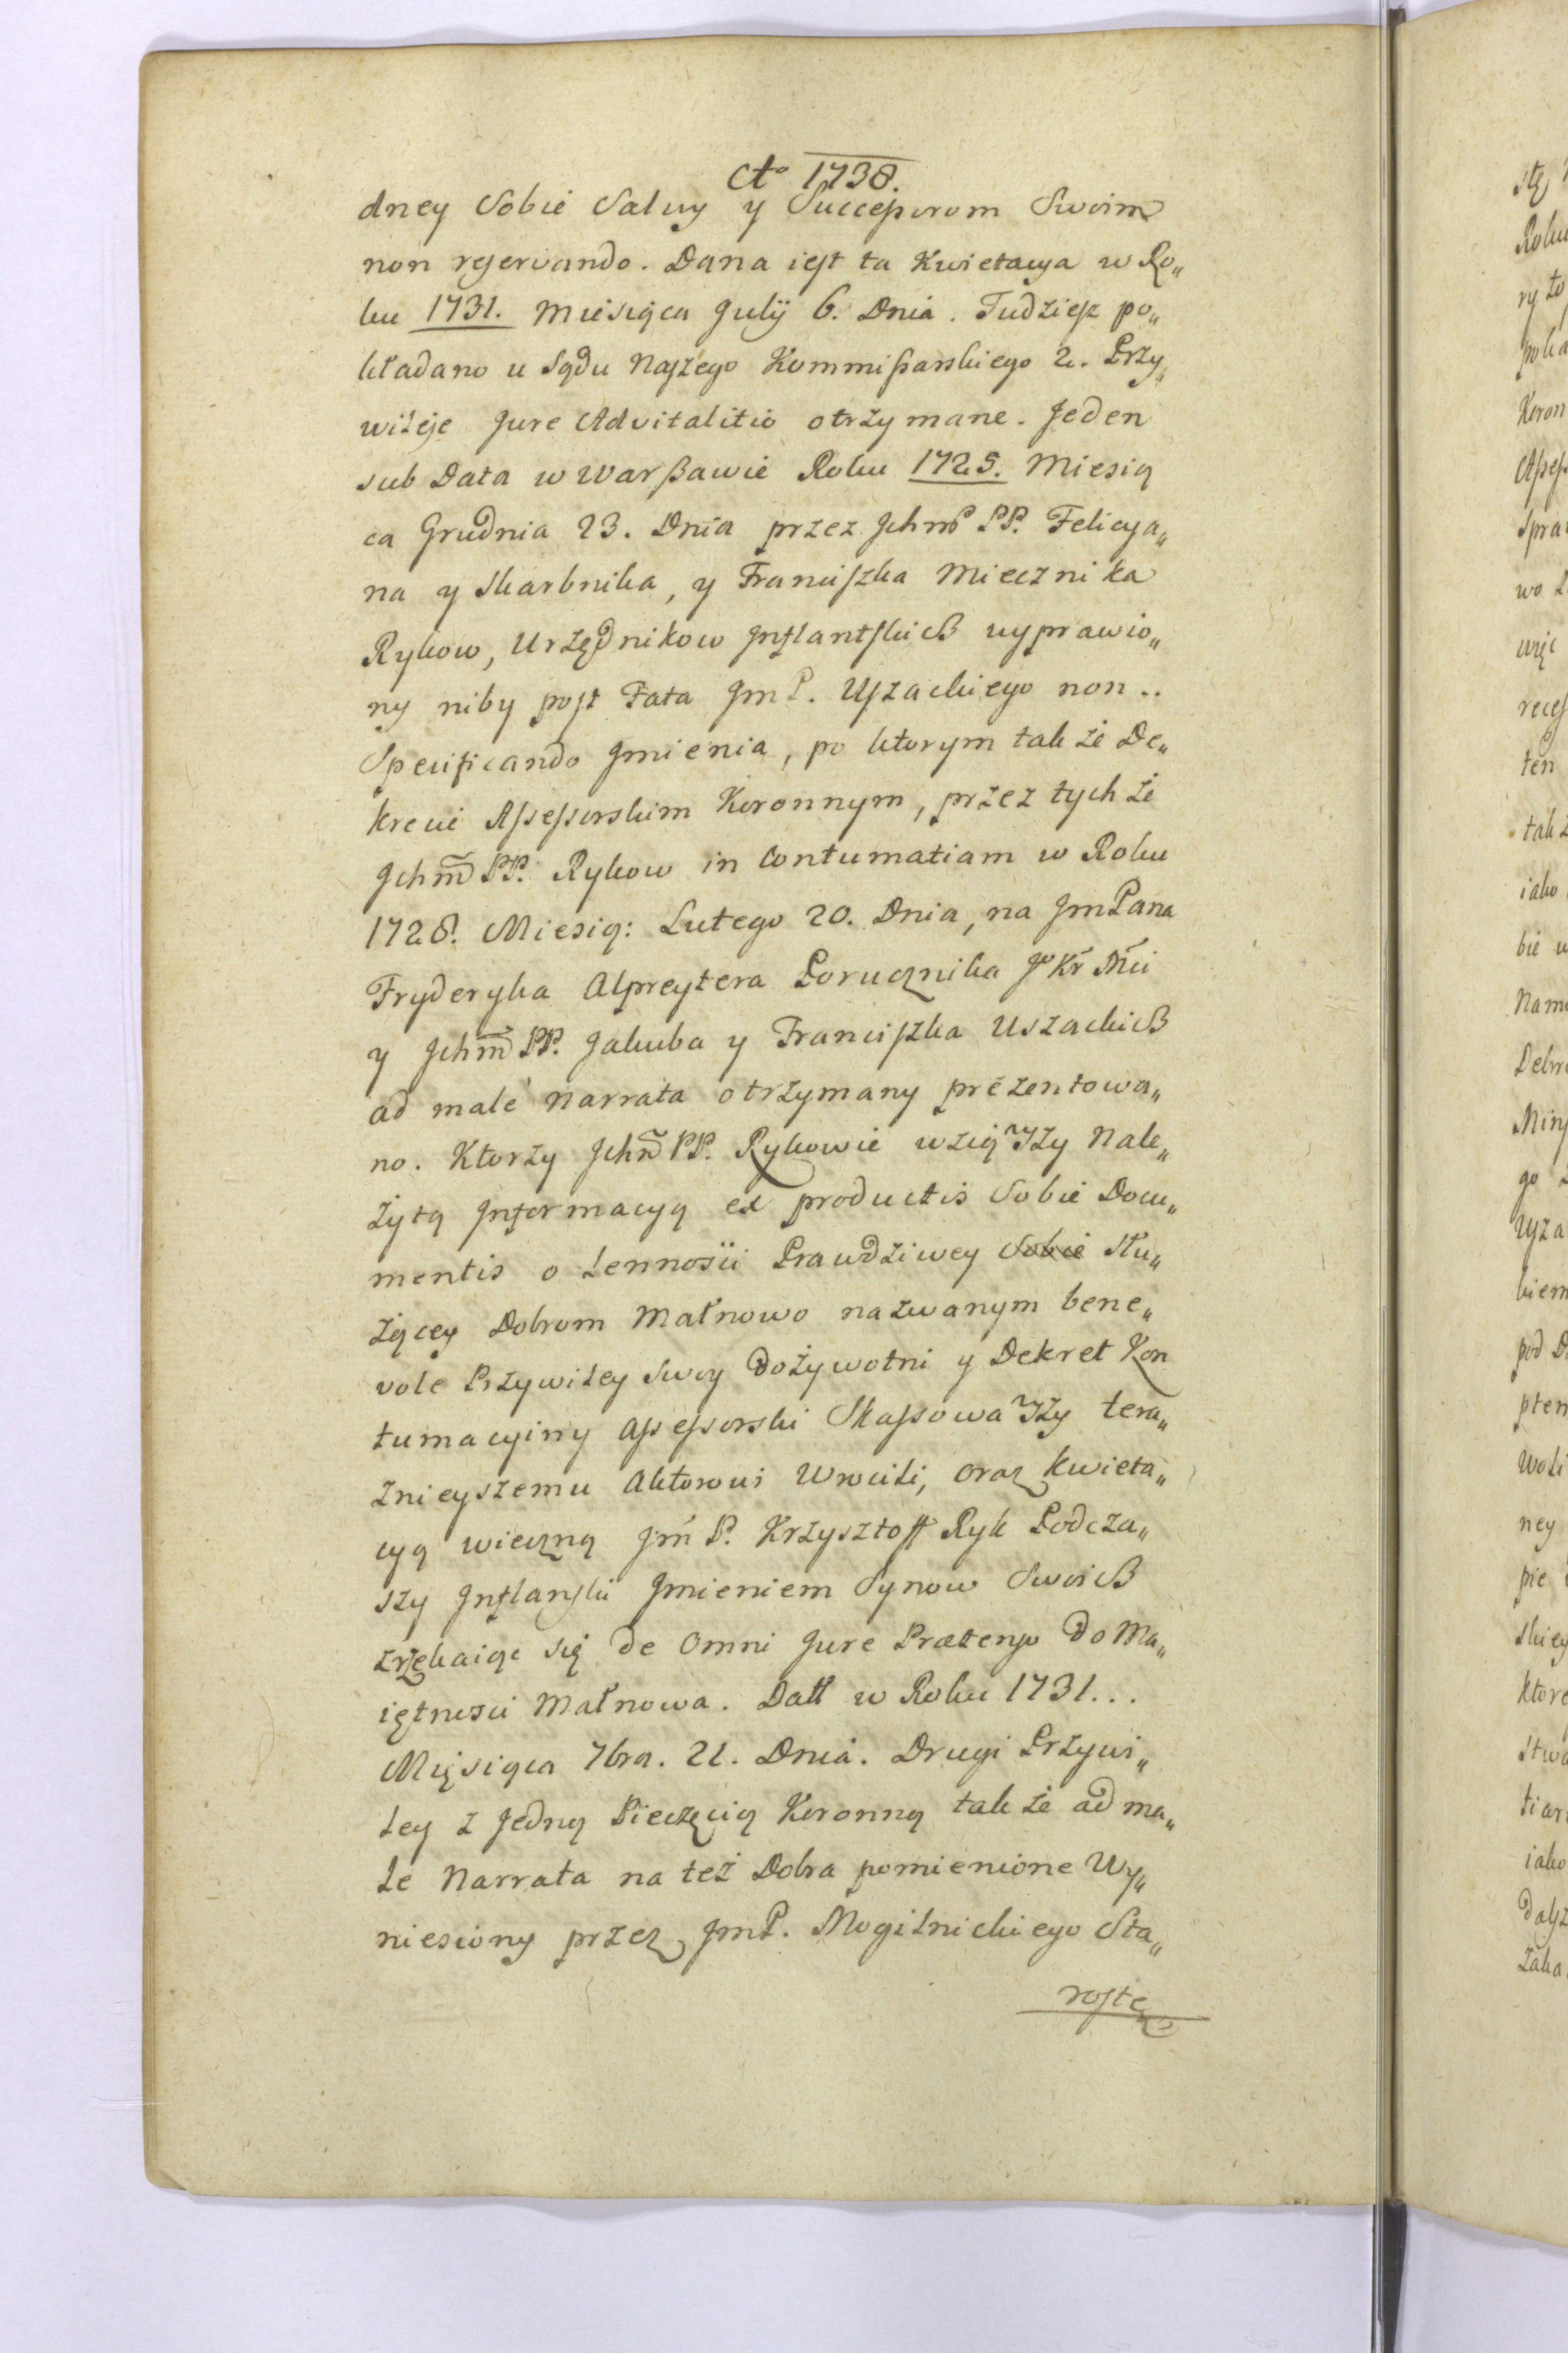 Ao 1738.
dney Sobie Salwy y Successorom Swoim
non reservando. Dana iest ta Kwietacya w Ro„
ku 1731. Miesiąca July 6. Dnia. Tudziesz po„
kładano u Sądu Naszego Kommissarskiego 2. Przy„
wileje Jure Advitalitio otrzymane. Jeden
sub Data w Warszawie Roku 1725. Miesią
ca Grudnia 23. Dnia przez Jchm PP. Felicya„
na y Skarbnika, y Franciszka Miecznika
Rykow, Urzędnikow Inflantskich wyprawio„
ny niby post Fata Jm P. Uszackiego non..
Specificando Jmienia, po ktorym tak że De„
krecie Assessorskim Koronnym, przez tych że
Jchm PP. Rykow in Contumatiam w Roku
1728. Miesią: Lutego 20. Dnia, na Jm Pana
Fryderyka Alpreytera Porucznika Jo Kr Mci
y Jchm PP. Jakuba y Franciszka Uszackich
ad male narrata otrzymany prezentowa„
no. Ktorzy Jchm PP. Rykowie wziąwszy Nale„
żytą Jnformacyą ex productis Sobie Docu„
mentis o Lennosci Prawdziwey Sobie słu„
żącey Dobrom Małnowo nazwanym bene„
vole Przywiley Swoy Dożywotni y Dekret Kon
tumacyiny Assessorski Skassowawszy tera„
znieyszemu Aktorowi Wrocili, oraz kwieta„
cyą wieczną Jm P. Krzysztoff Ryk Podcza„
szy Inflanski Jmieniem Synow Swoich
zrzekaiąc się de Omni Jure Prætenso do Ma„
iętnosci Małnowa. Datt w Roku 1731...
Miesiąca 7bra. 21. Dnia. Drugi Przywi„
ley z Jedną Pieczęcią Koronną tak że ad ma„
le Narrata na też Dobra pomienione Wy„
niesiony przez Jm P. Mogilnickiego Sta„
rostę